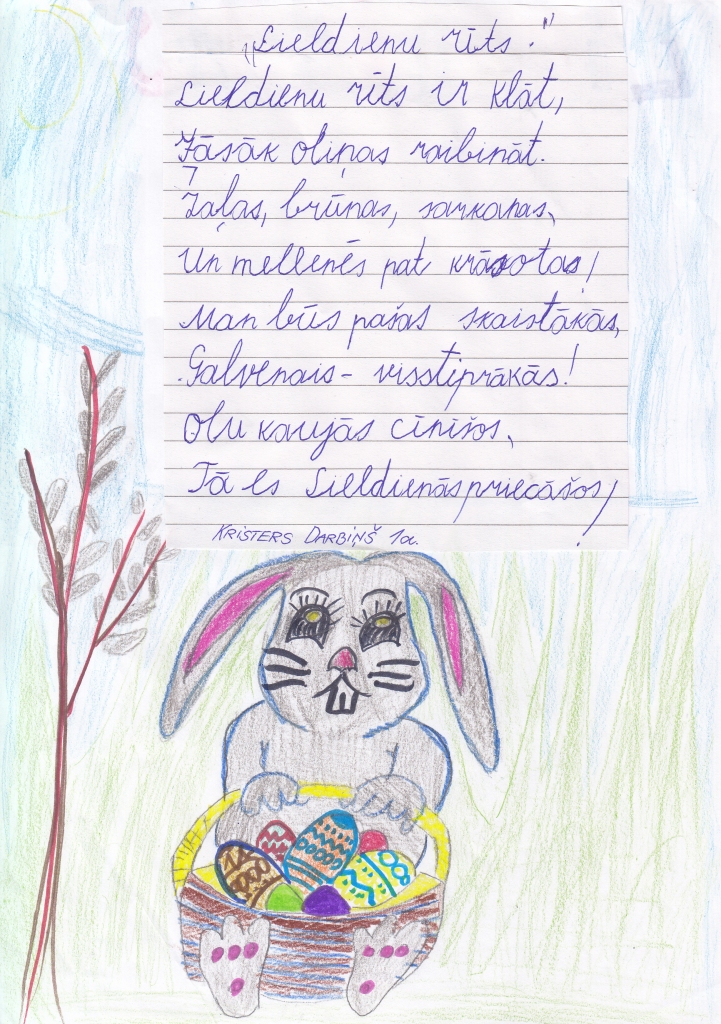 „Lieldienu rīts."
Lieldienu rīts ir klāt,
Jāsāk oliņas raibināt.
Zaļas, brūnas, sarkanas,
Un mellenēs pat krāsotas!
Man būs pašas skaistākās,
Galvenais - visstiprākās!
Olu kaujās cīnīšos,
Tā es Lieldienās priecāšos!
KRISTERS DARBIŅŠ 1a.